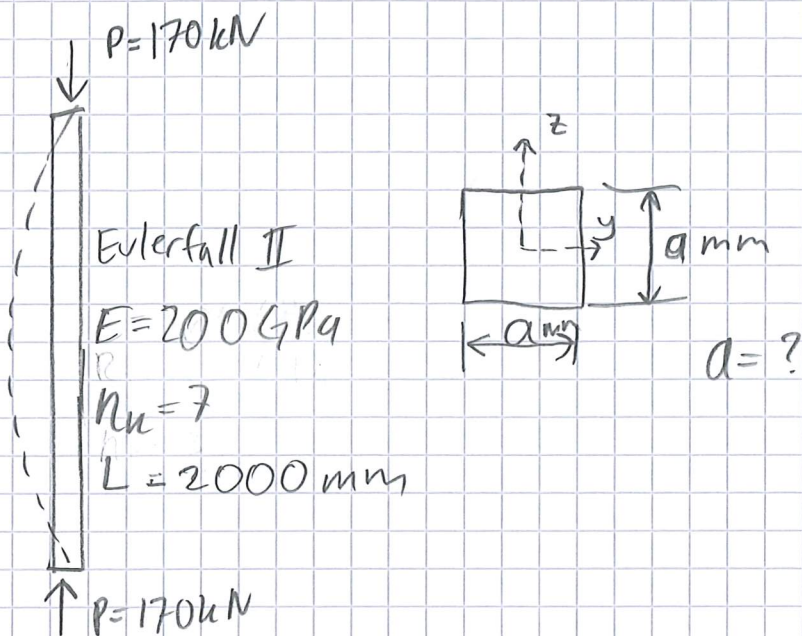 P=170kN
Eulerfall II
E=200GPa
nₖ=7
L=2000mm
P=170kN
z
y
a mm
a mm
a=?